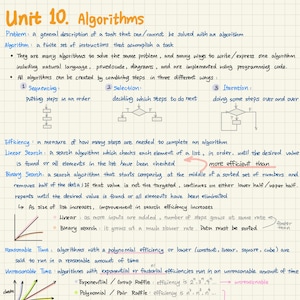 Unit 10. Algorithms
Problem : a general description of a task that can/cannot be solved with an algorithm
Algorithm : a finite set of instructions that accomplish a task
• They are many algorithms to solve the same problem, and many ways to write/express one algorithm
including natural language, pseudocode, diagrams, and are implemented using programming code.
• All algorithms can be created by combining steps in three different ways :
① Sequencing :
② Selection :
③ Iteration :
putting steps in an order
deciding which steps to do next
doing some steps over and over
Efficiency : a measure of how many steps are needed to complete an algorithm
Linear Search : a search algorithm which checks each element of a list, in order, until the desired value
is found or all elements in the list have been checked
more efficient than
Binary Search : a search algorithm that starts comparing at the middle of a sorted set of numbers and
removes half of the data; If that value is not the targeted, continues on either lower half/upper half,
repeats until the desired value is found or all elements have been eliminated
→ As size of lists increases, improvement in speed also increases
Linear : as more inputs are added, number of steps grows at same rate
Binary search : it grows at a much slower rate
Data must be sorted
Reasonable Time : algorithms with a polynomial efficiency or lower (constant, linear, square, cube) are
said to run in a reasonable amount of time
Unreasonable Time : algorithms with exponential or factorial efficiencies run in an unreasonable amount of time
• Exponential /
→ unreasonable
• Polynomial /